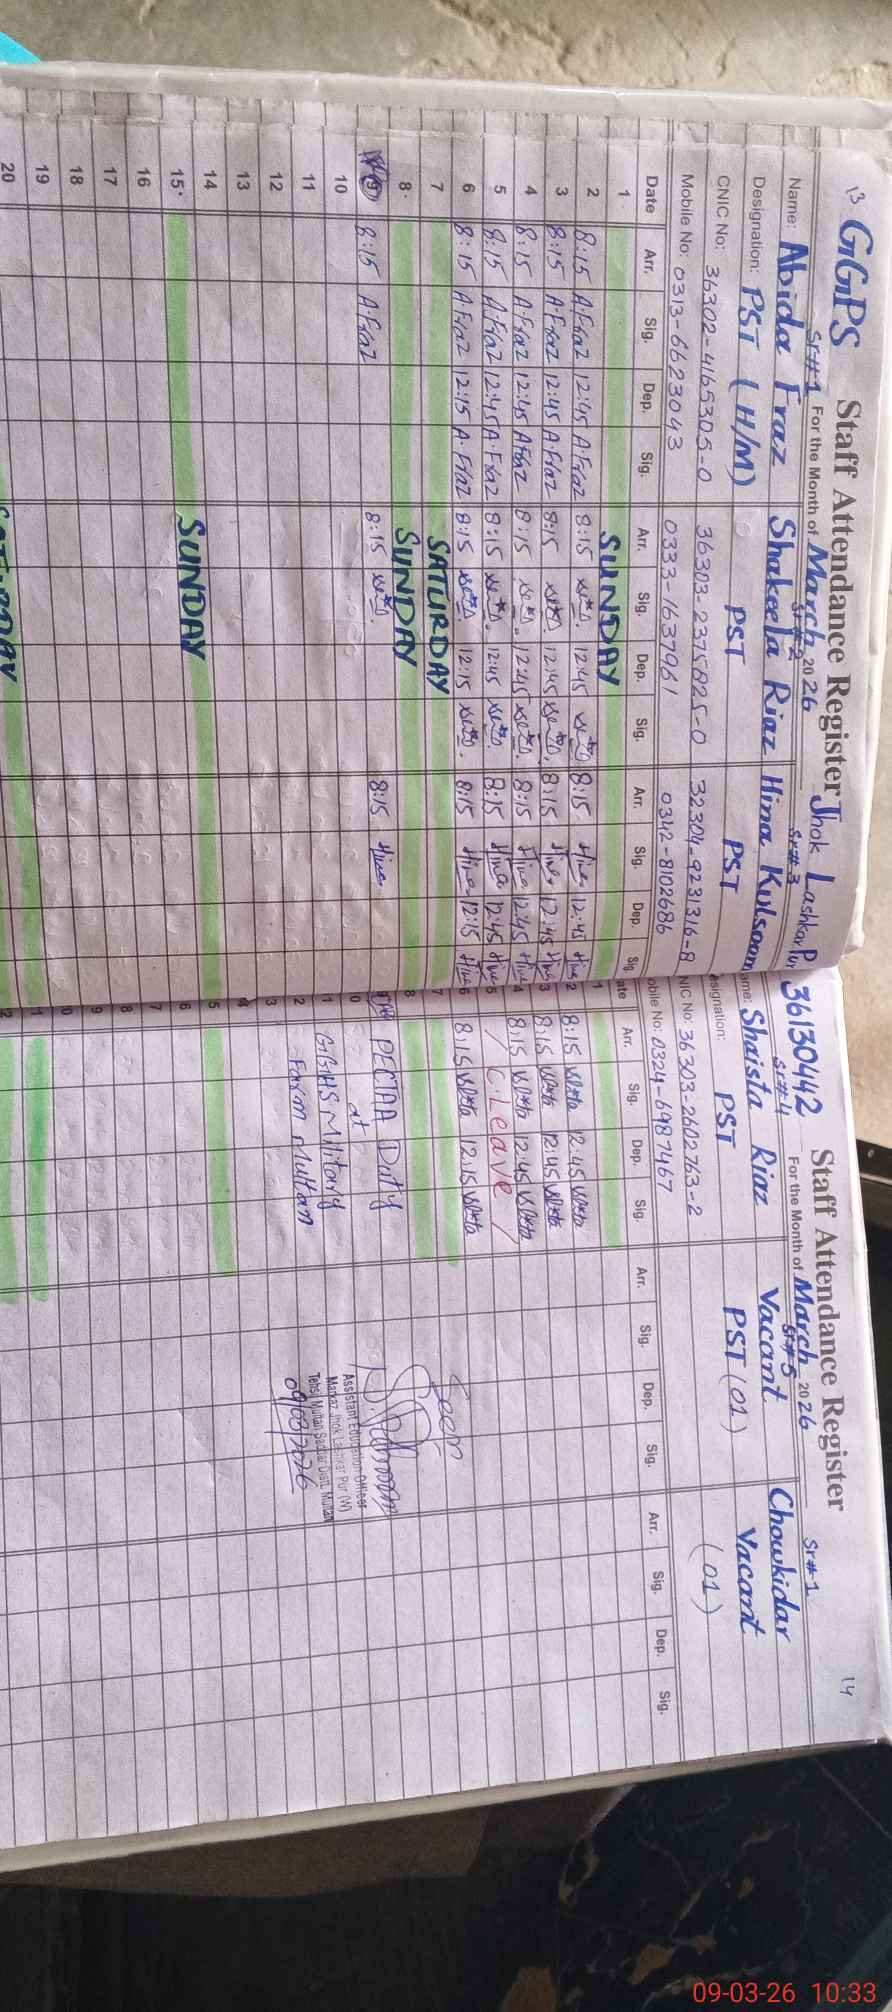 13 GGPS Staff Attendance Register Jhok Lashkar Pur
Sr#1 For the Month of March 2026
Sr#2 Sr#3
Name: Abida Fraz Shakeela Riaz Hina Kulsoom
Designation: PST (H/M) PST PST
CNIC No: 36302-4165305-0 36303-2375825-0 32304-9231316-8
Mobile No: 0313-6623043 0333-1637961 0342-8102686
Date Arr. Sig. Dep. Sig. Arr. Sig. Dep. Sig. Arr. Sig. Dep. Sig.
1 SUNDAY
2 8:15 A.Fraz 12:45 A.Fraz 8:15 12:45 8:15 Hina 12:45 Hina
3 8:15 A.Fraz 12:45 A.Fraz 8:15 12:45 8:15 Hina 12:45 Hina
4 8:15 A.Fraz 12:45 A.Fraz 8:15 12:45 8:15 Hina 12:45 Hina
5 8:15 A.Fraz 12:45 A.Fraz 8:15 12:45 8:15 Hina 12:45 Hina
6 8:15 A.Fraz 12:15 A.Fraz 8:15 12:15 8:15 Hina 12:15 Hina
7 SATURDAY
8 SUNDAY
9 8:15 A.Fraz 8:15 8:15 Hina
10
11
12
13
14
15 SUNDAY
16
17
18
19
20
36130442 Staff Attendance Register 14
Sr#4 For the Month of March 2026 Sr#1
Sr#5
ame: Shaista Riaz Vacant Chowkidar
esignation: PST PST (01) Vacant
NIC No: 36303-2602763-2 (01)
obile No: 0324-6987467
ate Arr. Sig. Dep. Sig. Arr. Sig. Dep. Sig. Arr. Sig. Dep. Sig.
1
2 8:15 12:45
3 8:15 12:45
4 8:15 12:45
5 C.Leave
6 8:15 12:15 Seen
7
8
PECTAA Duty
0 at Assistant Education Officer
1 GGHS Military Markaz Jhok Lashkar Pur (W)
2 Farm Multan Tehsil Multan Saddar Distt. Multan
3 09/03/2026
4
5
6
7
8
9
0
1
2
09-03-26 10:33